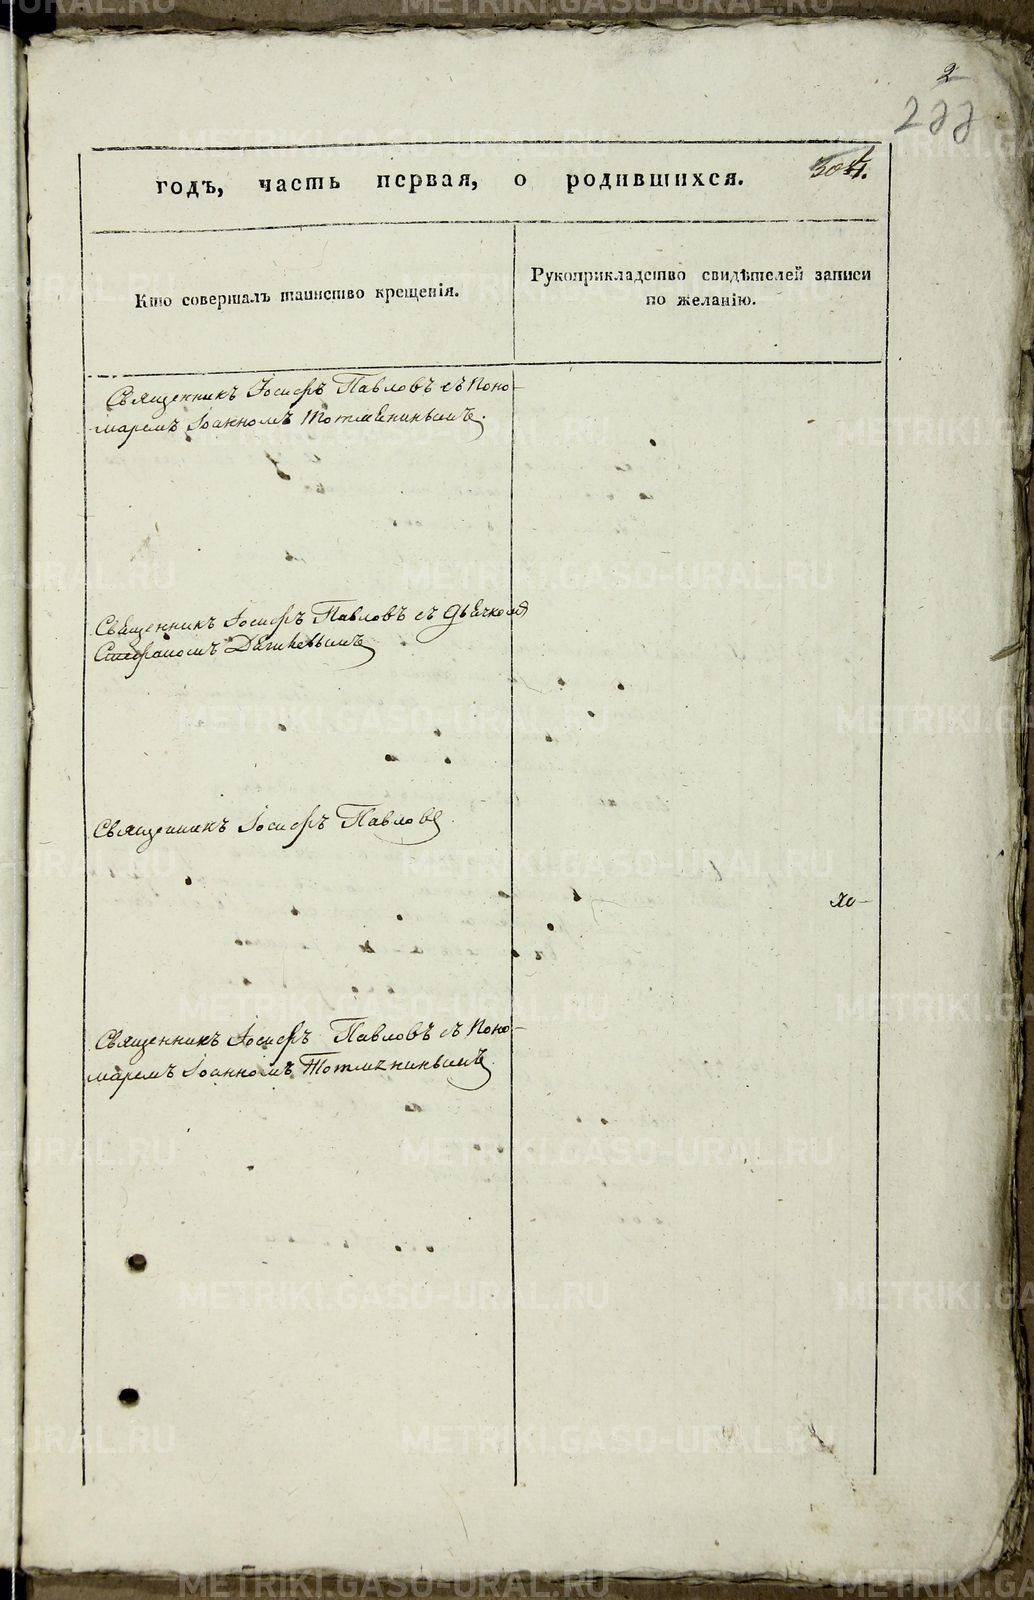 2
277
504.
годъ, часть первая, о родившихся.
Кто совершалъ таинство крещенія.
Рукоприкладство свидѣтелей записи
по желанію.
Священникъ Іосифъ Павловъ съ Поно-
маремъ Іоанномъ
Священникъ Іосифъ Павловъ съ Дьячкомъ
Стефаномъ
Священникъ Іосифъ Павловъ
Священникъ Іосифъ Павловъ съ Поно-
маремъ Іоанномъ
METRIKI.GASO-URAL.RU